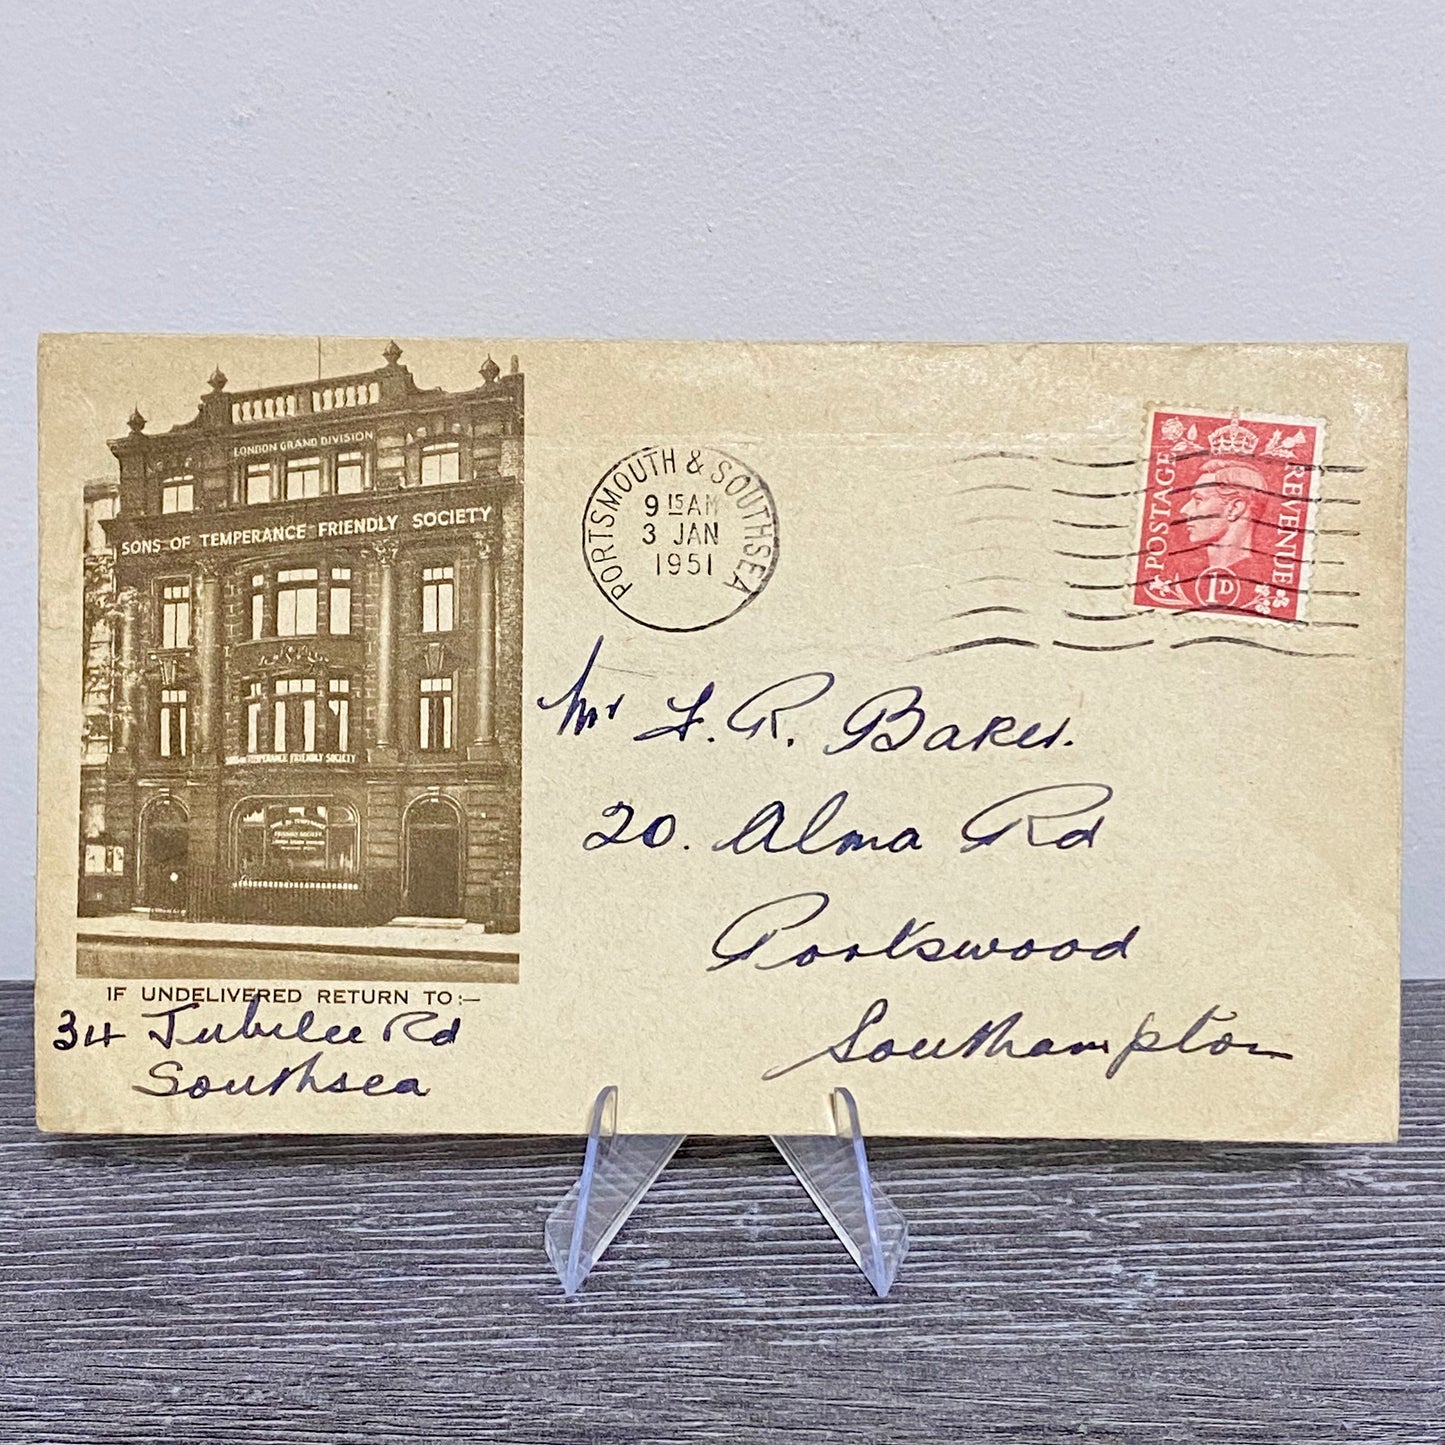 LONDON GRAND DIVISION
SONS OF TEMPERANCE FRIENDLY SOCIETY
SONS OF TEMPERANCE FRIENDLY SOCIETY
SONS OF TEMPERANCE
FRIENDLY SOCIETY
IF UNDELIVERED RETURN TO:—
34 Jubilee Rd
Southsea
PORTSMOUTH & SOUTHSEA
9 15 AM
3 JAN
1951
POSTAGE
REVENUE
1D
Mr F. R. Baker.
20. Alma Rd
Portswood
Southampton